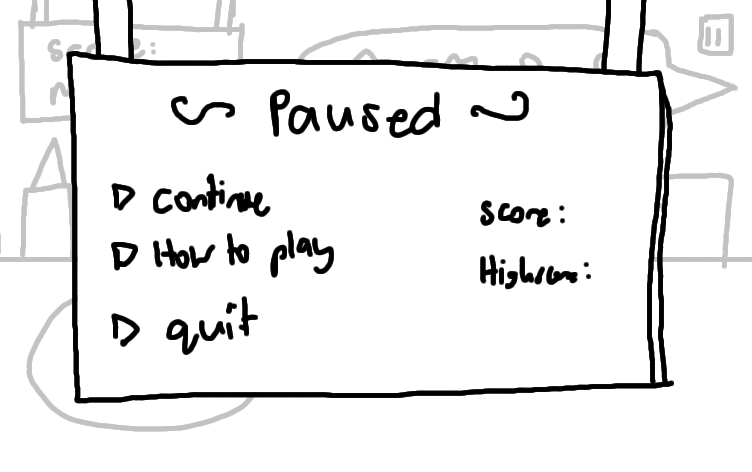 Paused
continue
How to play
quit
score:
Highscore:
score: